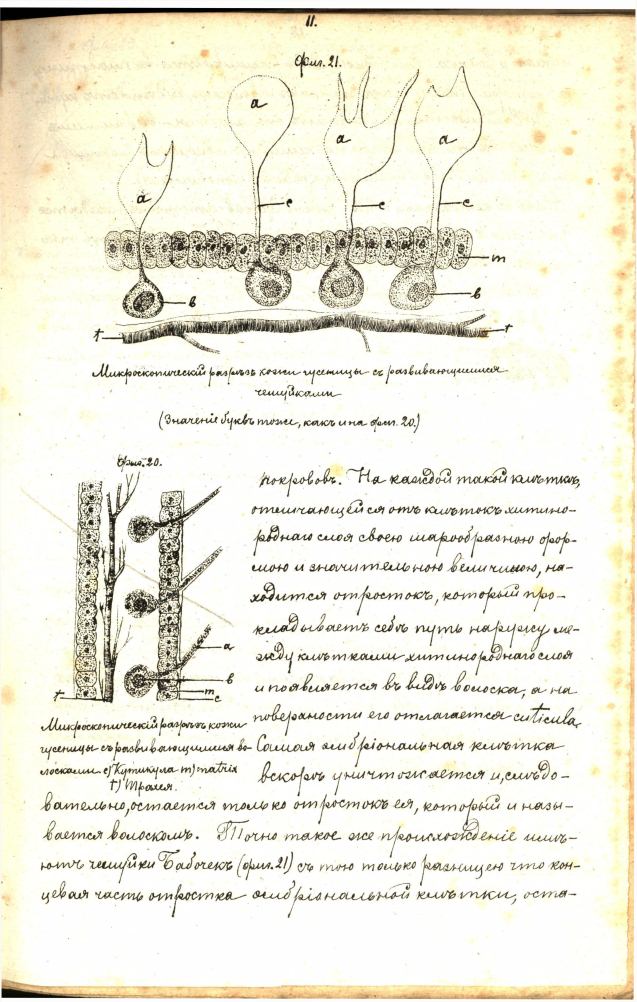 11.
Фиг. 21.
a
a
a
a
a
c
c
c
m
в
в
t
t
Микроскопическій разрѣзъ кожи гусеницы съ развивающимися
чешуйками
(Значеніе буквъ тоже, какъ и на фиг. 20.)
Фиг. 20.
a
в
m
c
t
Микроскопическій разрѣзъ кожи
гусеницы съ развивающимися во-
лосками c) Кутикула m) matrix
t) Трахея.
покрововъ. На каждой такой клѣткѣ,
отличающейся отъ клѣтокъ хитино-
роднаго слоя своею шарообразною фор-
мою и значительною величиною, на-
ходится отростокъ, который про-
кладываетъ себѣ путь наружу ме-
жду клѣтками хитинороднаго слоя
и появляется въ видѣ волоска, а на
поверхности его отлагается cuticula.
Самая эмбріональная клѣтка
вскорѣ уничтожается и, слѣдо-
вательно, остается только отростокъ ея, который и назы-
вается волоскомъ. Точно такое же происхожденіе имѣ-
ютъ чешуйки Бабочекъ (фиг. 21) съ тою только разницею что кон-
цевая часть отростка эмбріональной клѣтки, оста-